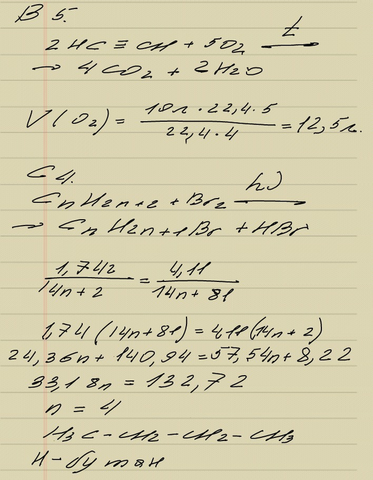 В 5.
2 HC ≡ CH + 5O₂ —t→
→ 4CO₂ + 2H₂O
V(O₂) = (10л · 22,4 · 5) / (22,4 · 4) = 12,5л.
С 4.
CnH2n+2 + Br₂ —hν→
→ CnH2n+1Br + HBr
1,74г / (14n + 2) = 4,11 / (14n + 81)
1,74 (14n + 81) = 4,11 (14n + 2)
24,36n + 140,94 = 57,54n + 8,22
33,18n = 132,72
n = 4
H₃C – CH₂ – CH₂ – CH₃
Н – бутан